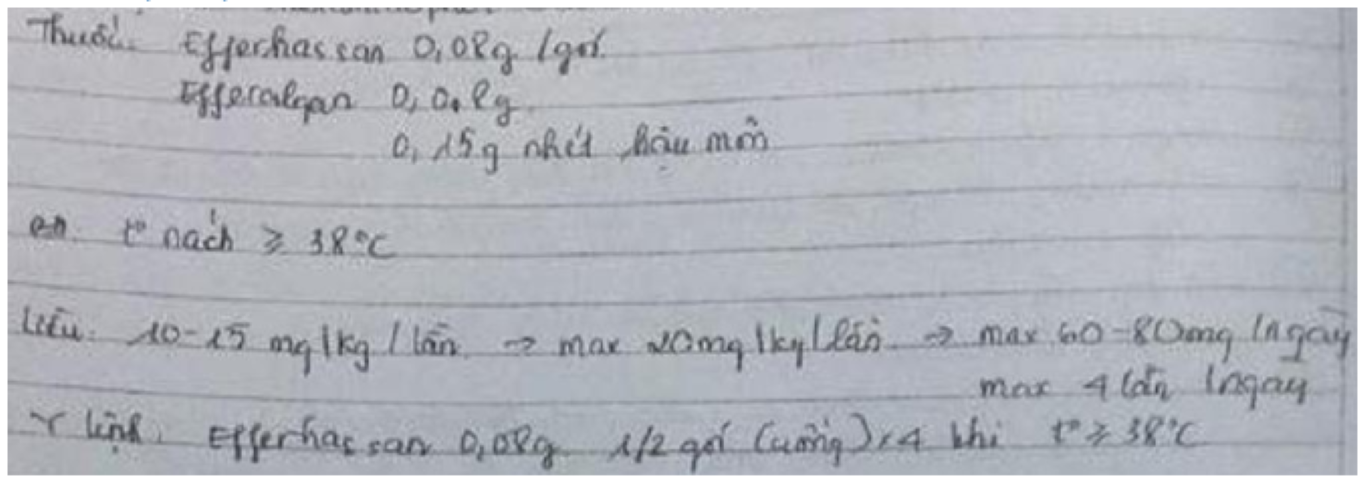 Thuốc: Efferhassan 0,08g /gói.
Efferalgan 0,08g.
0,15g nhét hậu môn
t° nách ≥ 38°C
Liều: 10-15 mg/kg/lần → max 20mg/kg/lần → max 60-80mg/ngày
max 4 lần/ngày
Y lệnh: Efferhassan 0,08g 1/2 gói (uống) x 4 khi t° ≥ 38°C